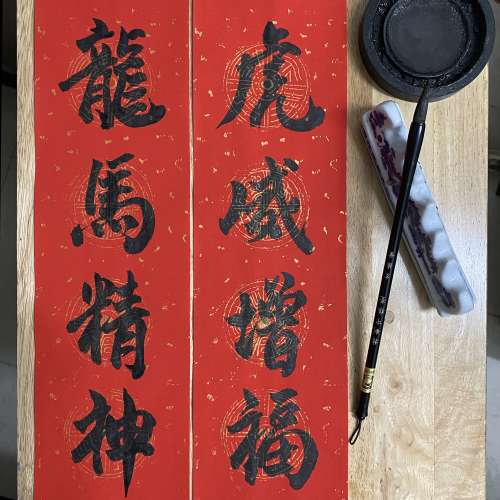 虎威增福
龍馬精神